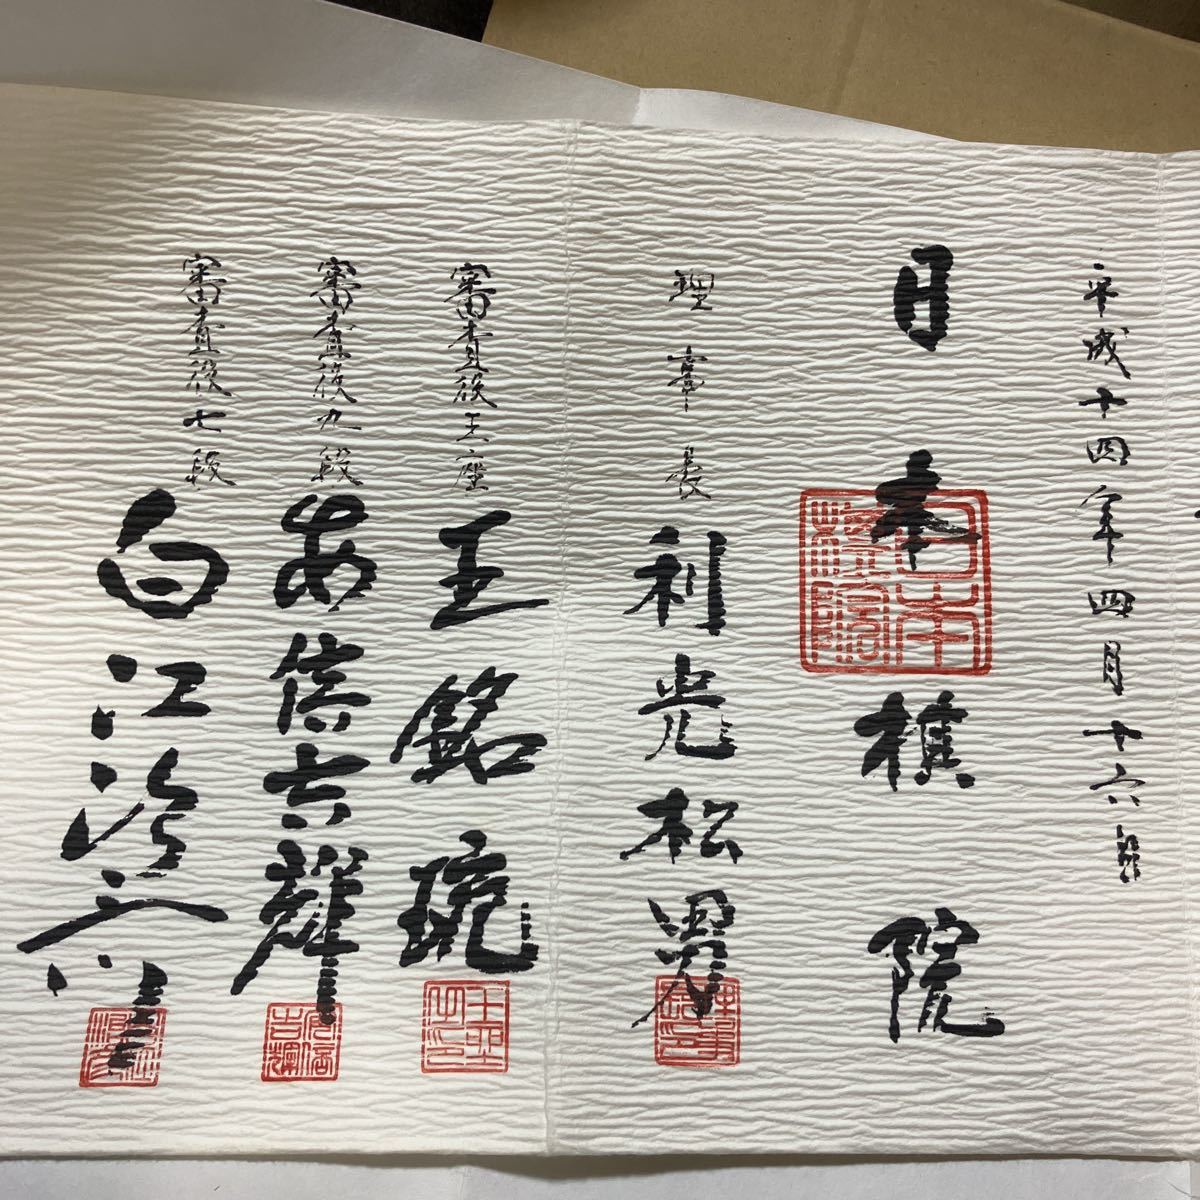 平成十四年四月十六日
日本棋院
日本棋院
理事長 利光松男
審査役王座 王銘琬
審査役九段 安倍吉輝
安倍吉輝
審査役七段 白江治彦